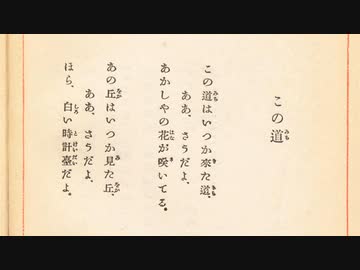 この道
この道はいつか來た道、
ああ、さうだよ、
あかしやの花が咲いてる。
あの丘はいつか見た丘、
ああ、さうだよ、
ほら、白い時計臺だよ。